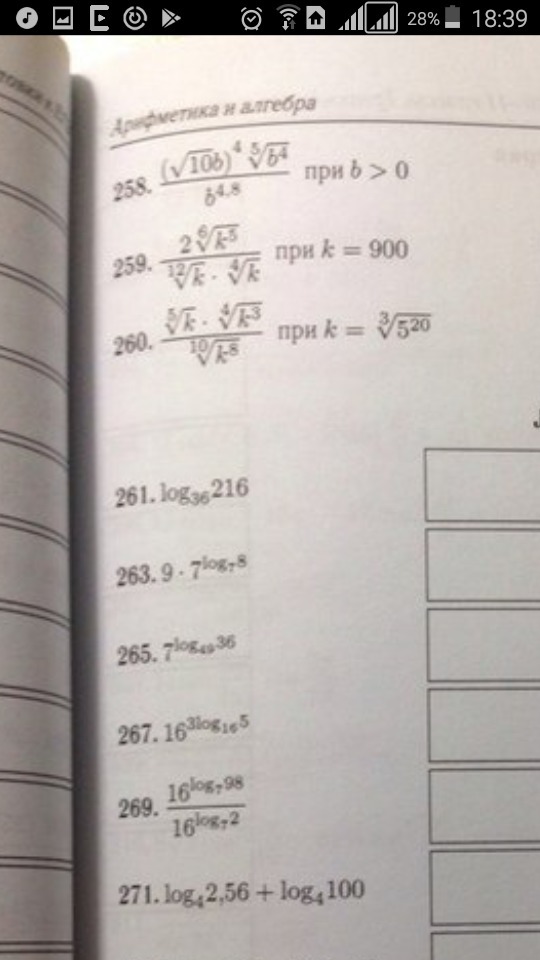 28% 18:39
Арифметика и алгебра
258. (√10b)⁴ ⁵√b⁴ / b⁴,⁸ при b > 0
259. 2 ⁶√k⁵ / ¹²√k · ⁴√k при k = 900
260. ⁵√k · ⁴√k³ / ¹⁰√k⁸ при k = ³√5²⁰
261. log₃₆216
263. 9 · 7^log₇8
265. 7^log₄₉36
267. 16^3log₁₆5
269. 16^log₇98 / 16^log₇2
271. log₄2,56 + log₄100